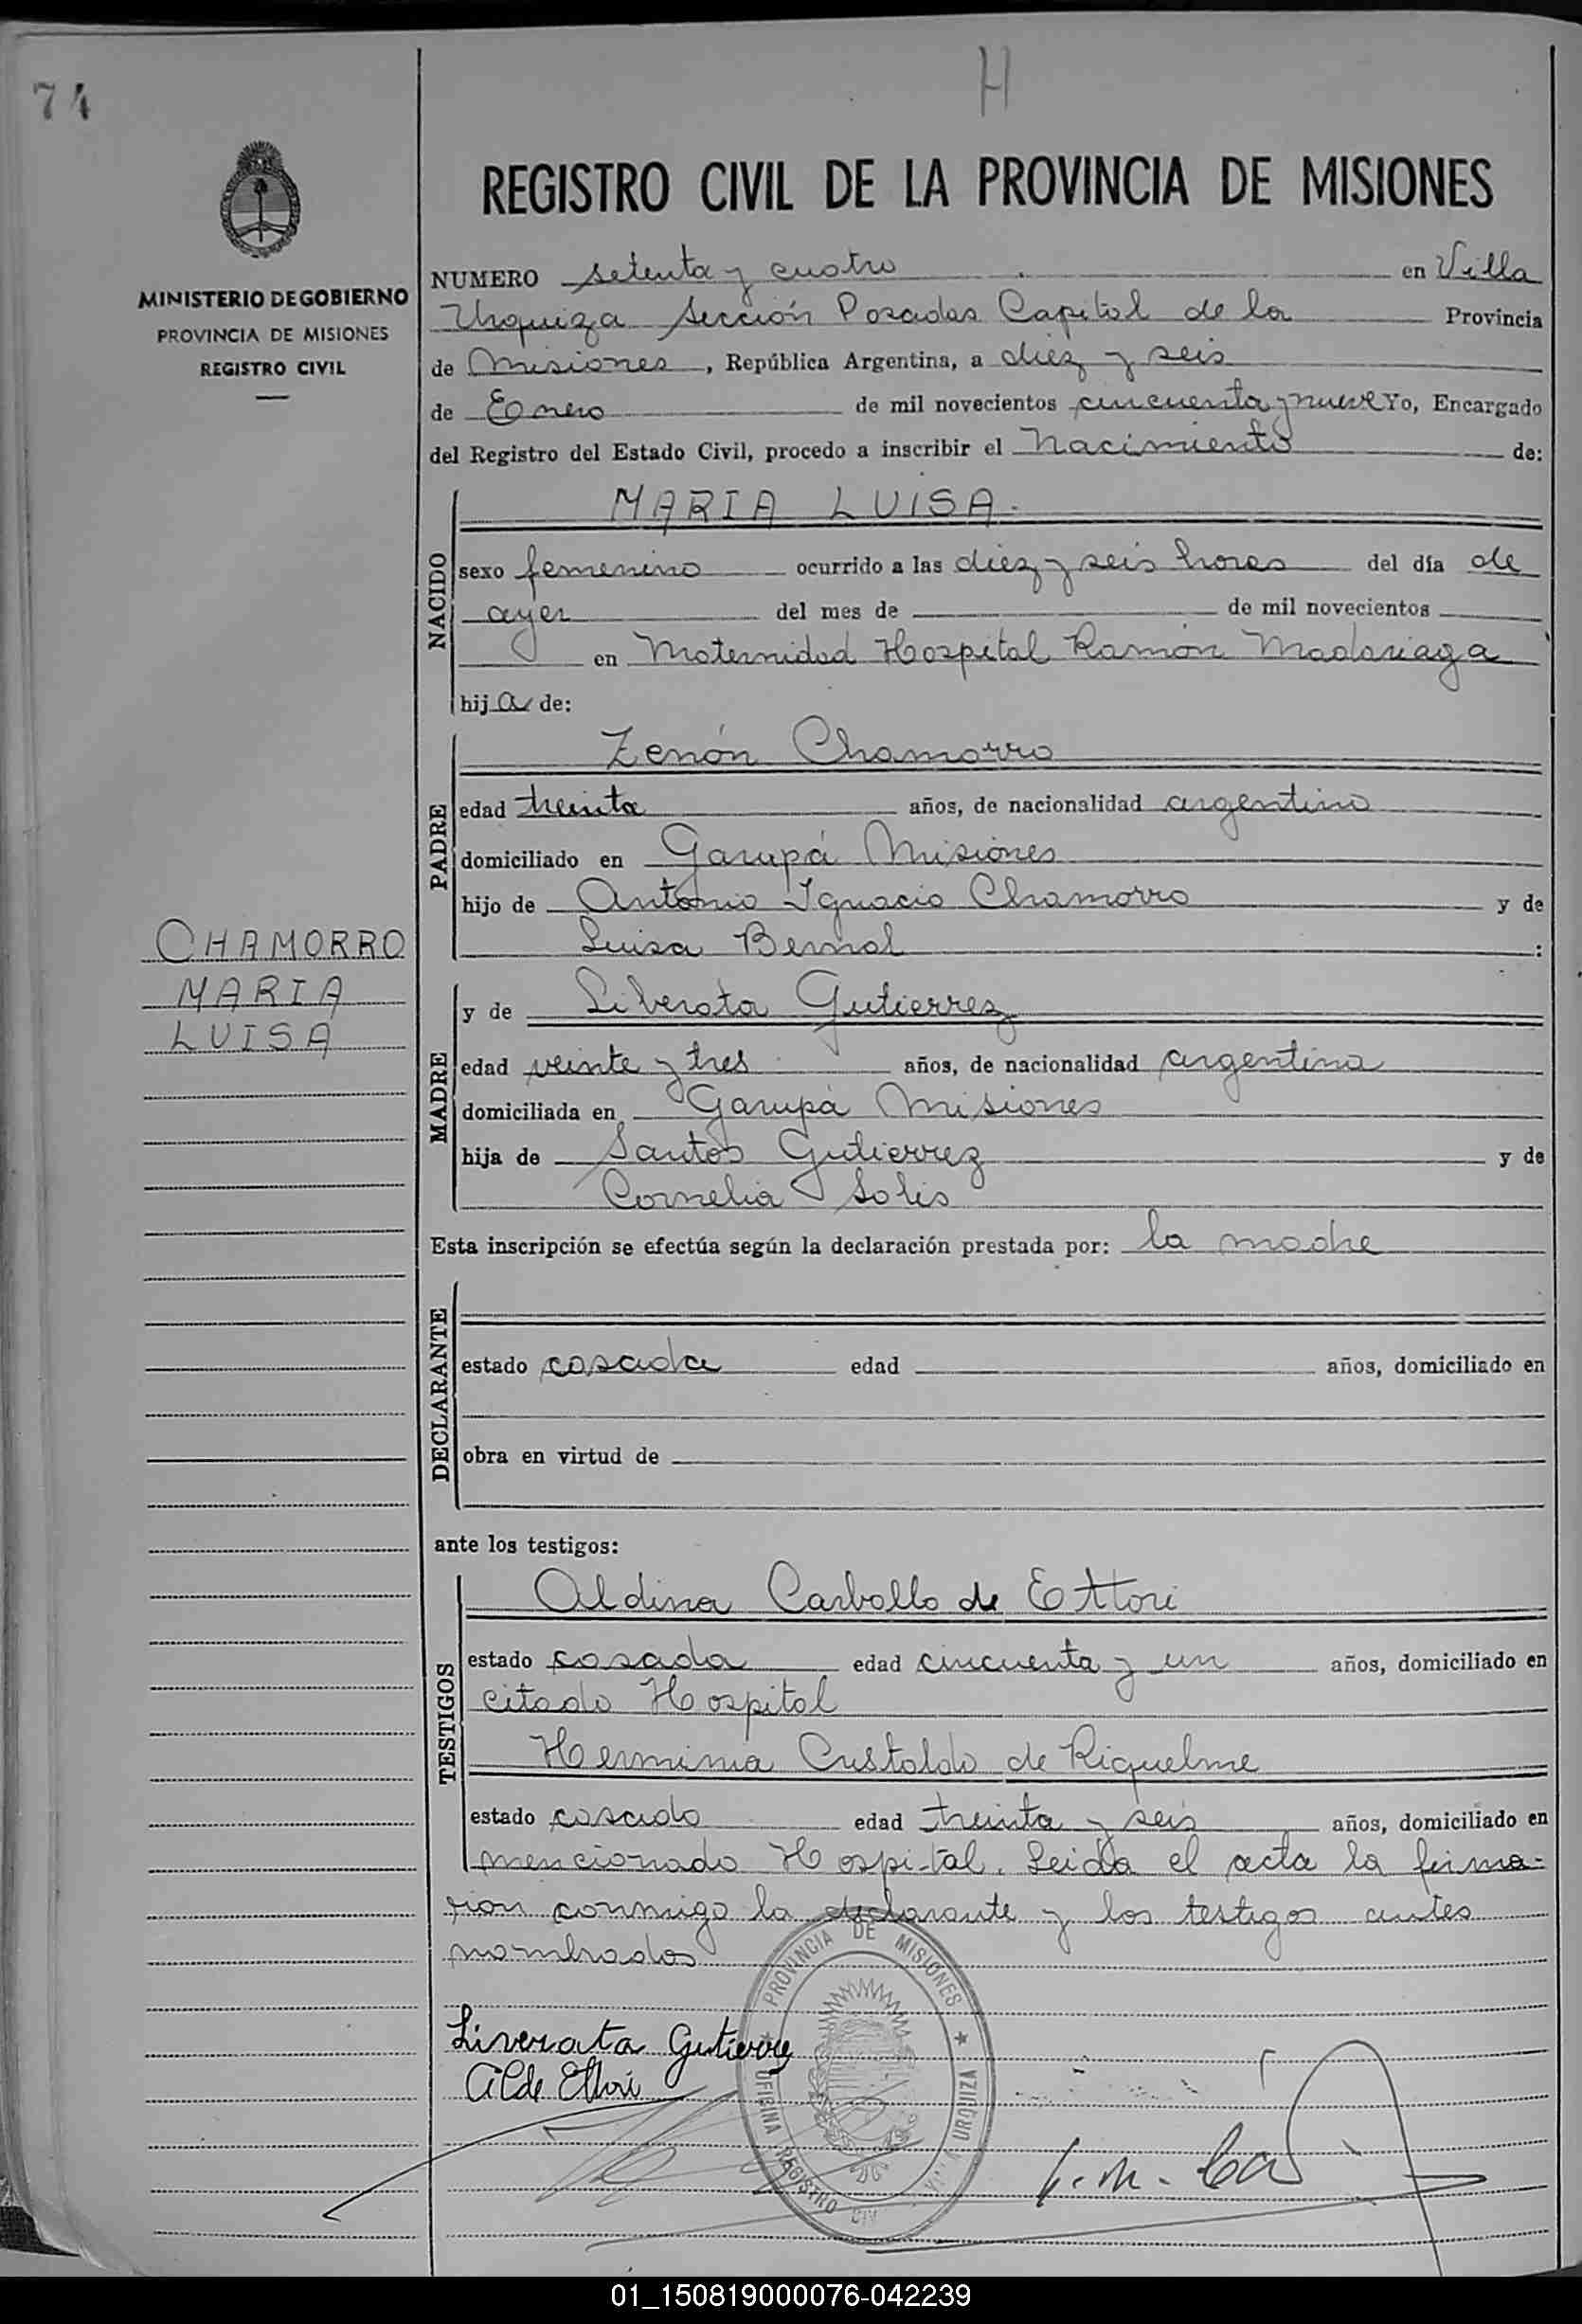 74
H
REGISTRO CIVIL DE LA PROVINCIA DE MISIONES
MINISTERIO DE GOBIERNO
PROVINCIA DE MISIONES
REGISTRO CIVIL
NUMERO setenta y cuatro en Villa
Urquiza Sección Posadas Capital de la Provincia
de Misiones, República Argentina, a diez y seis
de Enero de mil novecientos cincuenta y nueve Yo, Encargado
del Registro del Estado Civil, procedo a inscribir el Nacimiento de:
NACIDO
MARIA LUISA.
sexo femenino ocurrido a las diez y seis horas del día de
ayer del mes de de mil novecientos
en Maternidad Hospital Ramón Madariaga
hija de:
PADRE
Zenón Chamorro
edad treinta años, de nacionalidad argentino
domiciliado en Garupá Misiones
hijo de Antonio Ignacio Chamorro y de
Luisa Bernal :
CHAMORRO
MARIA
LUISA
MADRE
y de Liberata Gutierrez
edad veinte y tres años, de nacionalidad argentina
domiciliada en Garupá Misiones
hija de Santos Gutierrez y de
Cornelia Solis
Esta inscripción se efectúa según la declaración prestada por: la madre
DECLARANTE
estado casada edad años, domiciliado en
obra en virtud de
ante los testigos:
TESTIGOS
Aldina Carballo de Ettori
estado casada edad cincuenta y un años, domiciliado en
citado Hospital
Herminia Custaldo de Riquelme
estado casado edad treinta y seis años, domiciliado en
mencionado Hospital. Leida el acta la firma-
ron conmigo la declarante y los testigos antes
nombrados
PROVINCIA DE MISIONES
OFICINA REGISTRO CIV
URQUIZA
Liverata Gutierrez
A C de Ettori
01_150819000076-042239